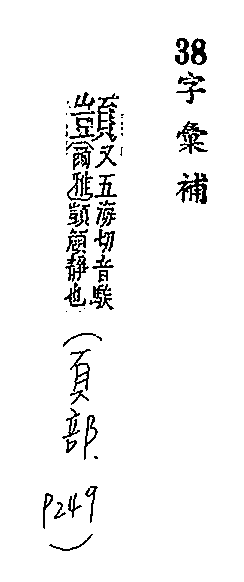 38字彙補
顗
又五海切音騃
爾雅顗頠靜也
(頁部.
P249)